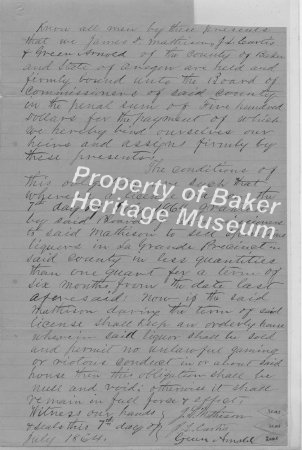 Know all men by these presents
that we James D. Mathison, J.S. Curtis
& Green Arnold of the County of Baker
and State of Oregon are held and
firmly bound unto the Board of
Commissioners of said county
in the penal sum of Five hundred
Dollars for the payment of which
we hereby bind ourselves our
heirs and assigns firmly by
these presents.
The conditions of
this obligation such that
whereas
7th day
by said Board
to said Mathison to sell
liquors in La Grande Precinct in
said County in less quantities
than one quart for a term of
six months from the date last
aforesaid. Now if the said
Mathison during the term of said
license shall keep an orderly house
wherein said liquor shall be sold
and permit no unlawful gaming
or riotous conduct in or about said
house then this obligation shall be
null and void, otherwise it shall
remain in full force & effect.
Witness our hands
& seals this 7th day of
July 1864.
J D Mathison
J.S. Curtis
Green Arnold
Property of Baker
Heritage Museum